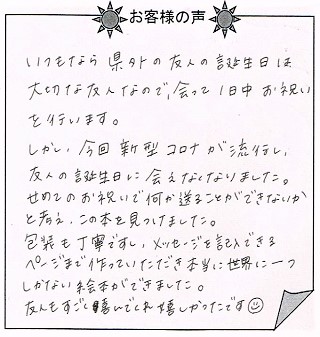 お客様の声
いつもなら県外の友人の誕生日は
大切な友人なので、会って1日中お祝い
を行います。
しかし、今回新型コロナが流行し、
友人の誕生日に会えなくなりました。
せめてのお祝いで何か送ることができないか
と考え、この本を見つけました。
包装も丁寧ですし、メッセージを記入できる
ページまで作っていただき本当に世界に一つ
しかない絵本ができました。
友人もすごく喜んでくれ嬉しかったです